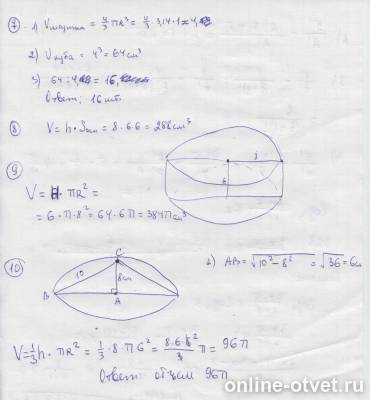 7 1) Vшарика = 4/3 πR³ = 4/3 · 3,14 · 1 ≈ 4
2) Vкуба = 4³ = 64см³
3) 64 : 4 = 16
Ответ: 16шт.
8 V = h · Sосн = 8 · 6 · 6 = 288см³
9
V = H · πR² =
= 6 · π · 8² = 64 · 6π = 384πсм³
8
6
10
C
10
8см
B
A
1) AB = √10² − 8² = √36 = 6см
V = 1/3 h · πR² = 1/3 · 8 · π6² = 8·6·6²/3 π = 96π
Ответ: объём 96π
online-otvet.ru